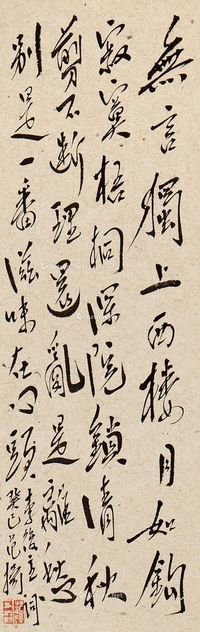 無言獨上西樓月如鉤
寂寞梧桐深院鎖清秋
剪不斷理還亂是離愁
別是一番滋味在心頭
李後主詞
癸巳